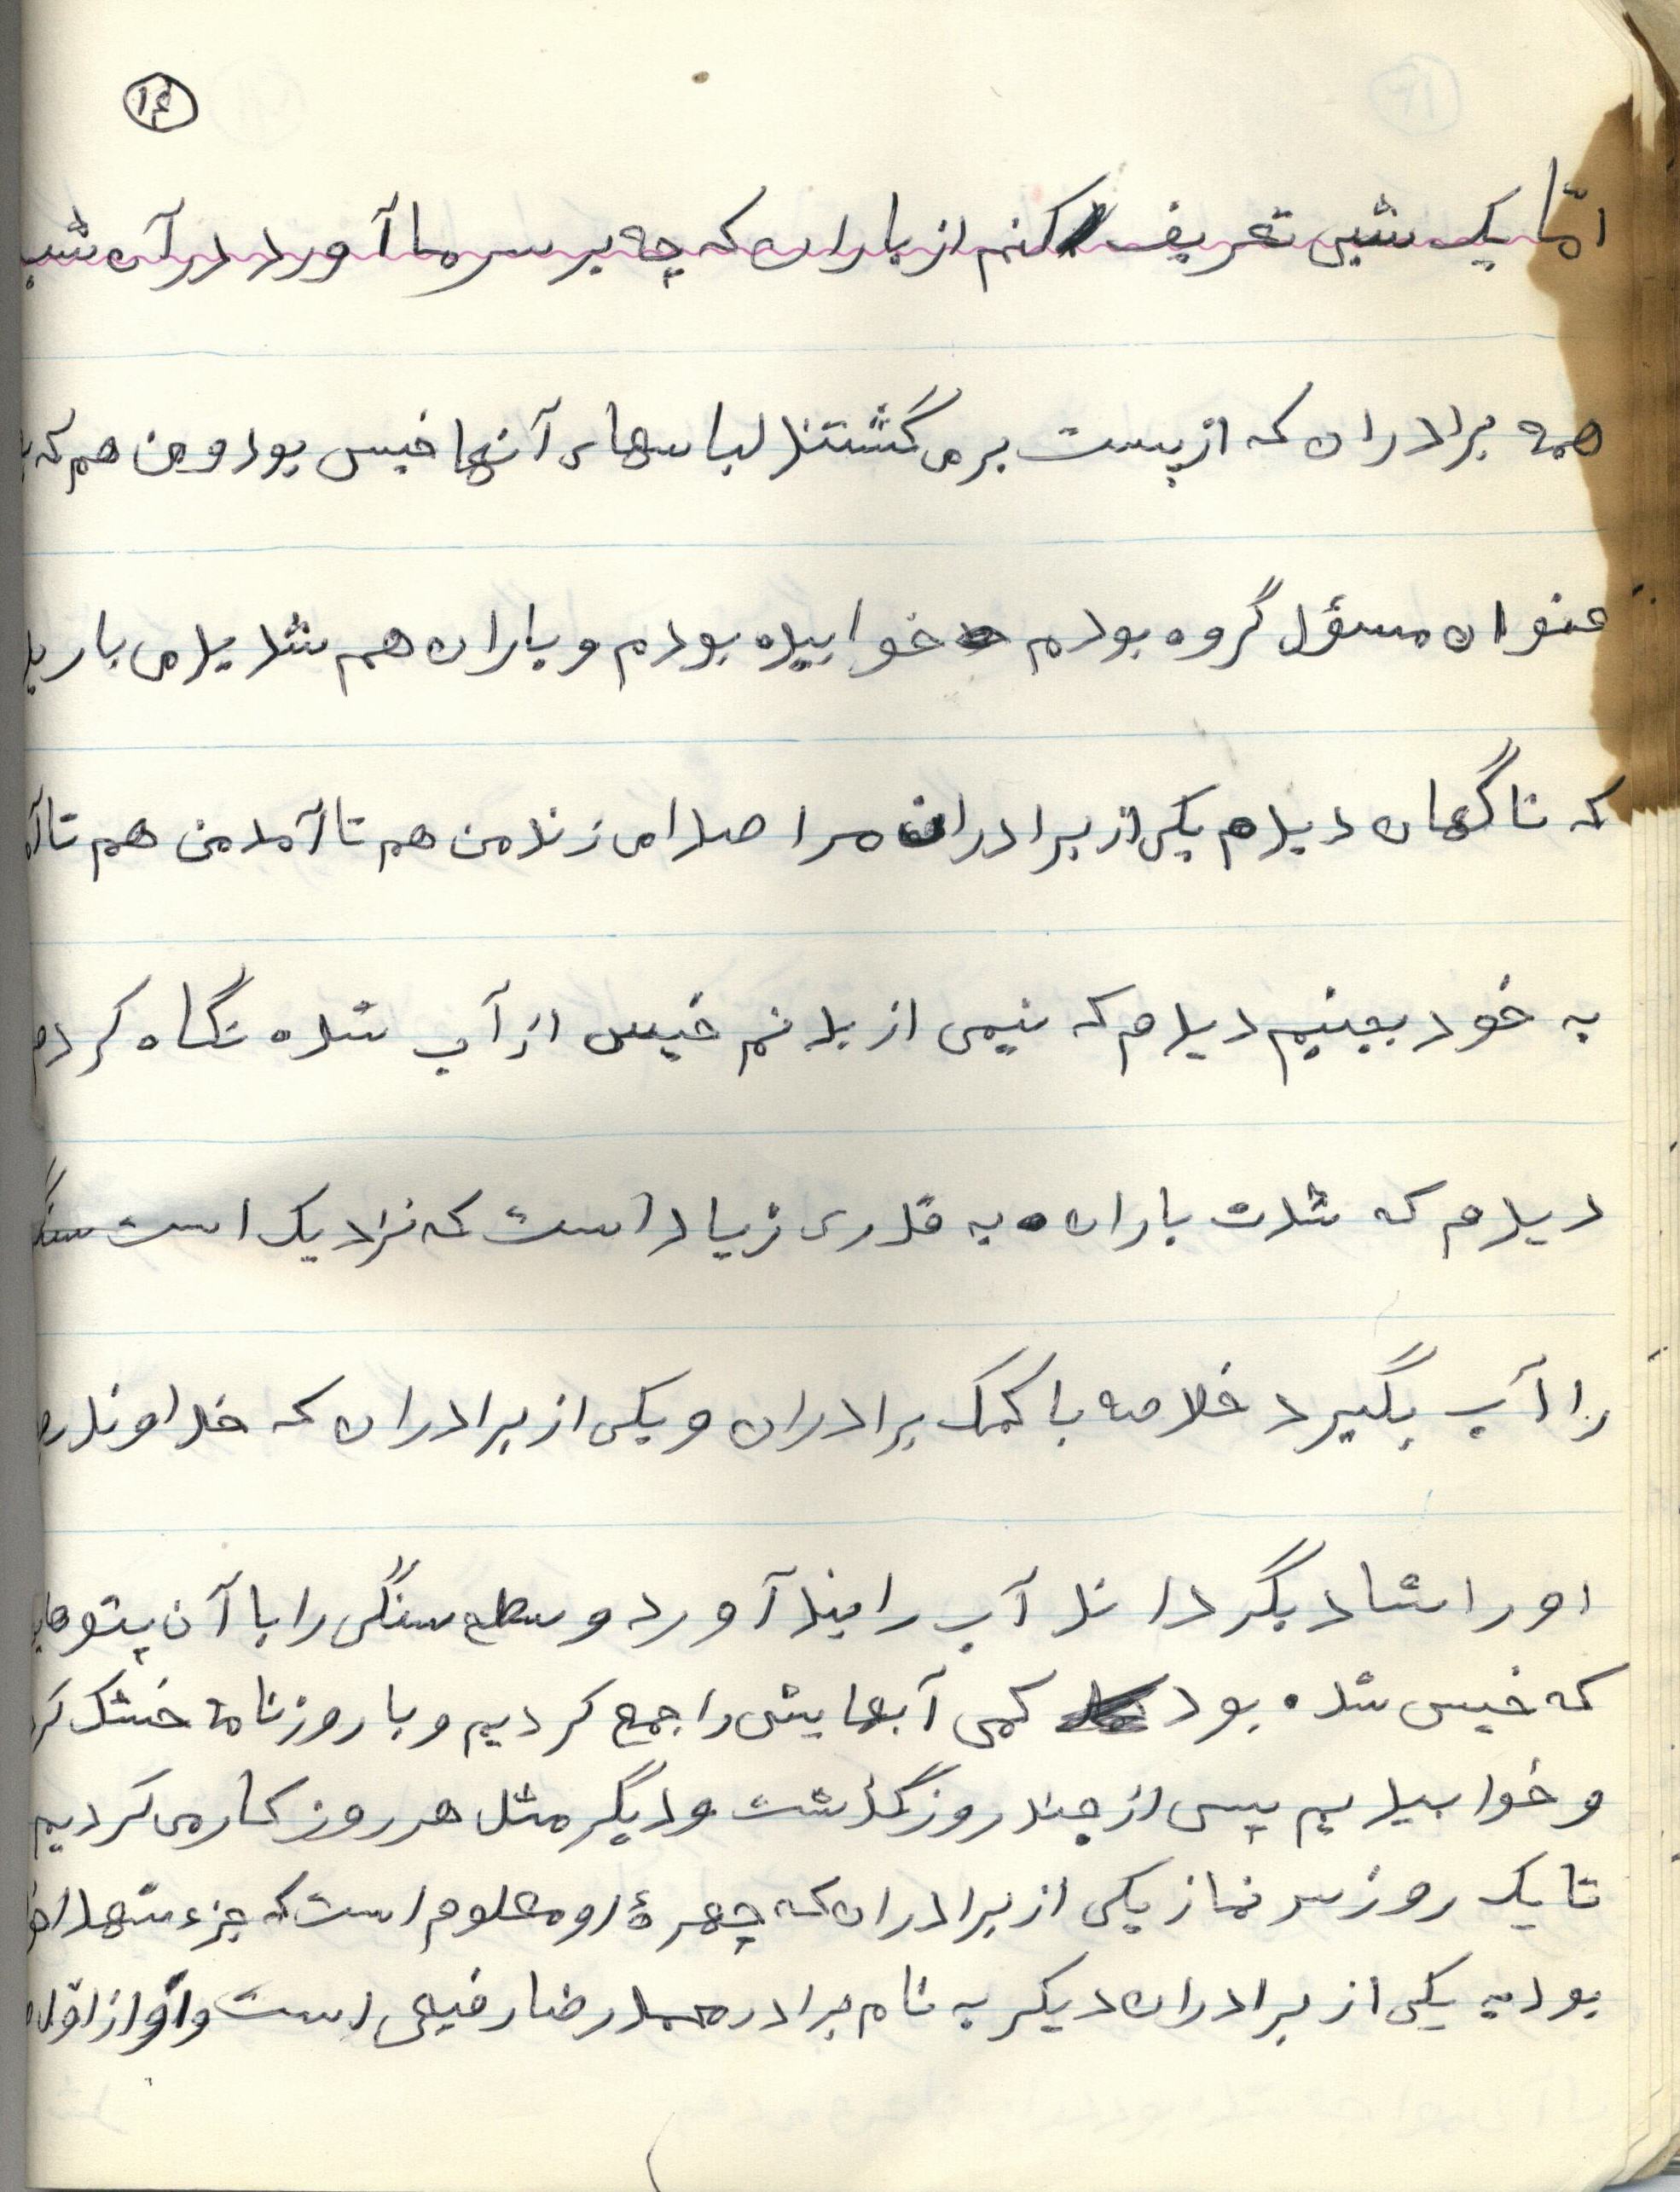 ۱۴
امّا یک شبی تعریف کنم از باران که چه بر سر ما آورد در آن شب
همه برادران که از پست بر می گشتند لباسهای آنها خیس بود و من هم که
عنوان مسؤل گروه بودم خوابیده بودم و باران هم شدید می بارید
که ناگهان دیدم یکی از برادران مرا صدا می زند من هم تا آمد من هم تا
به خود بجنبم دیدم که نیمی از بدنم خیس از آب شده نگاه کردم
دیدم که شدت باران به قدری زیاد است که نزدیک است سنگر
را آب بگیرد خلاصه با کمک برادران و یکی از برادران که خداوند
او را شاد بگرداند آب را بند آورد و سطح سنگر را با آن پتوهای
که خیس شده بود کمی آبهایش را جمع کردیم و با روزنامه خشک
و خوابیدیم پس از چند روز گذشت و دیگر مثل هر روز کار می کردیم
تا یک روز سر نماز یکی از برادران که چهرهٔ او معلوم است که جزء شهدا
بود به یکی از برادران دیگر به نام برادر محمدرضا رفیعی است و او از اوّل